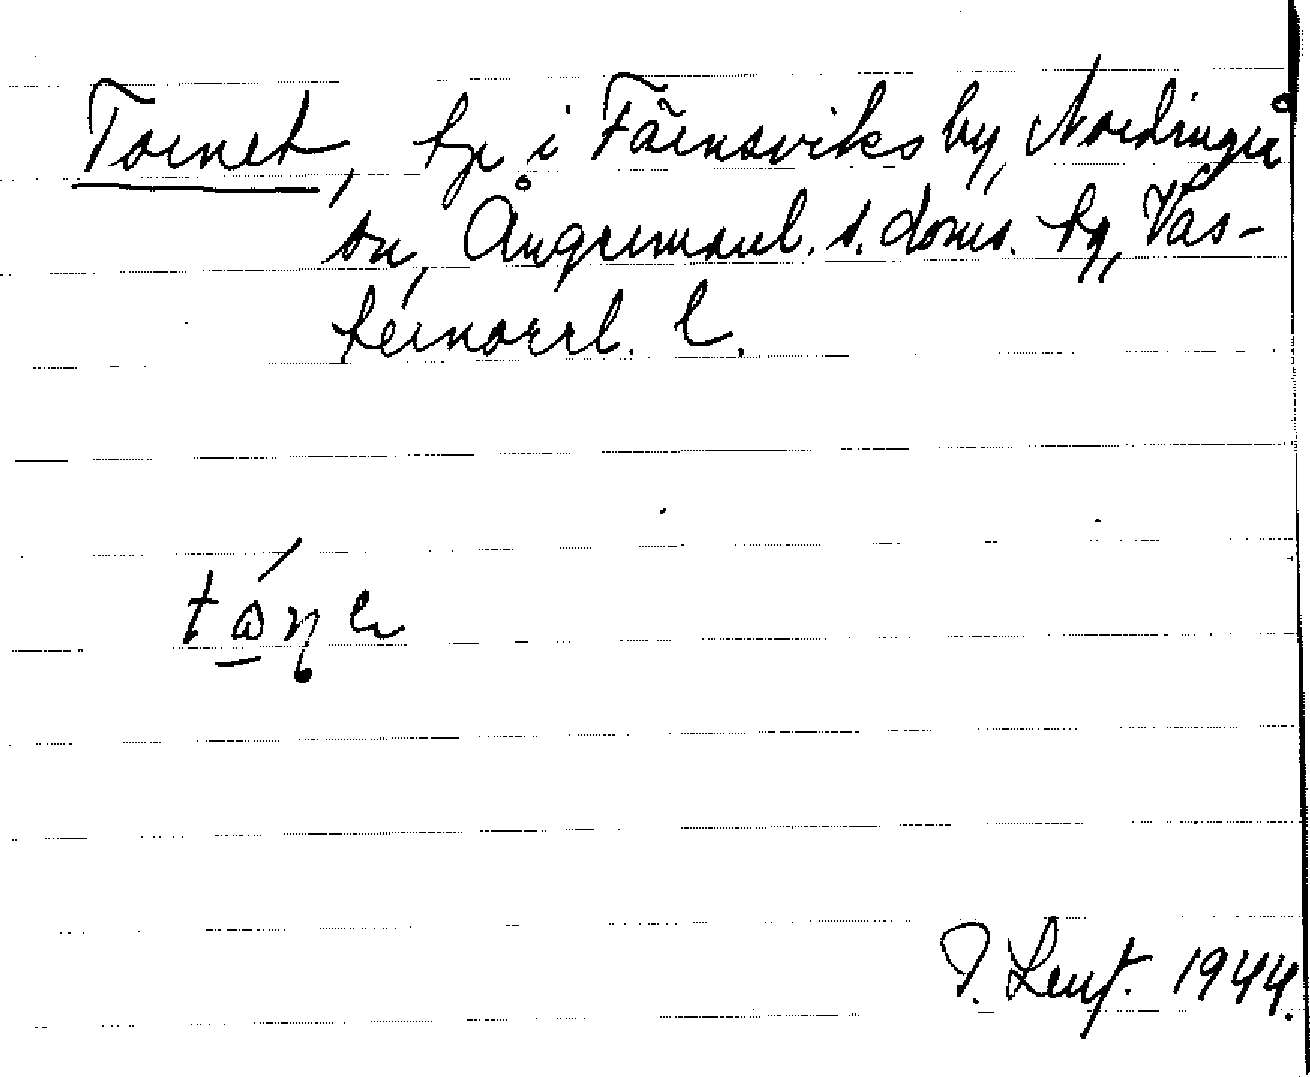 Tornet, tp i Färnsviks by, Nordingrå
sn, Ångermanl. s. doms. tg, Väs-
ternorrl. l.
1944.